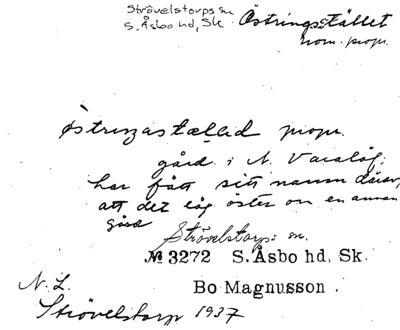 Strövelstorps sn
S. Åsbo hd, Sk.
Östringstället
nom. propr.
östrɩŋastæḷḷəd propr.
gård i N. Varalöf;
har fått sitt namn därav,
att det låg öster om en annan
gård
Strövelstorps sn.
№ 3272 S. Åsbo hd, Sk.
Bo Magnusson.
N. L.
Strövelstorp 1937